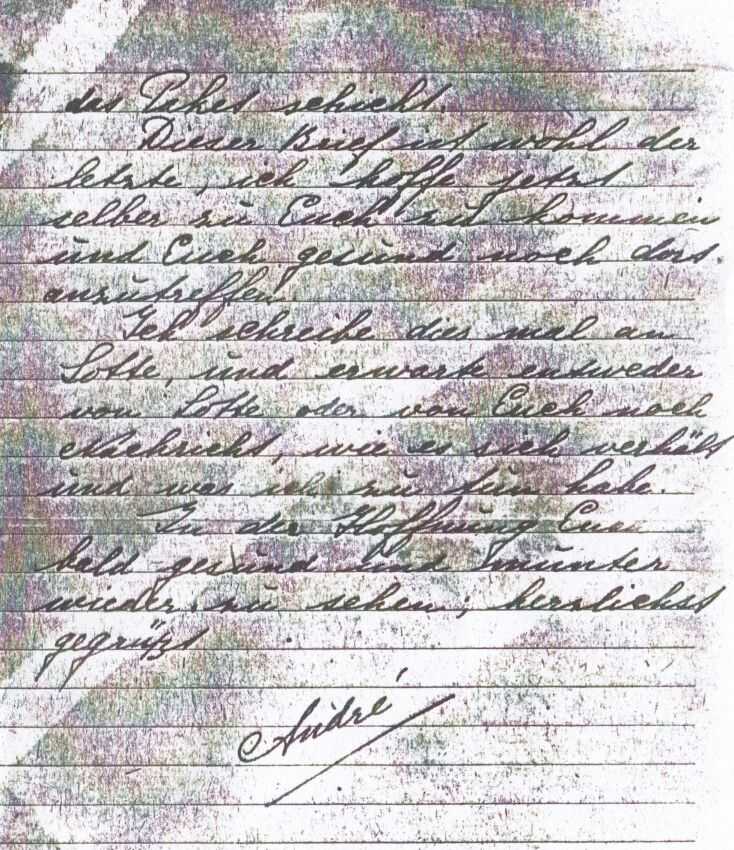 das Paket schickt.
Dieser Brief ist wohl der
letzte, ich hoffe jetzt
selber zu Euch zu kommen
und Euch gesund noch dort
anzutreffen.
Ich schreibe dies mal an
Lotte, und erwarte entweder
von Lotte oder von Euch noch
Nachricht, wie es sich verhält
und was ich zu tun habe.
In der Hoffnung Euch
bald gesund und munter
wieder zu sehen, herzlichst
gegrüßt
André